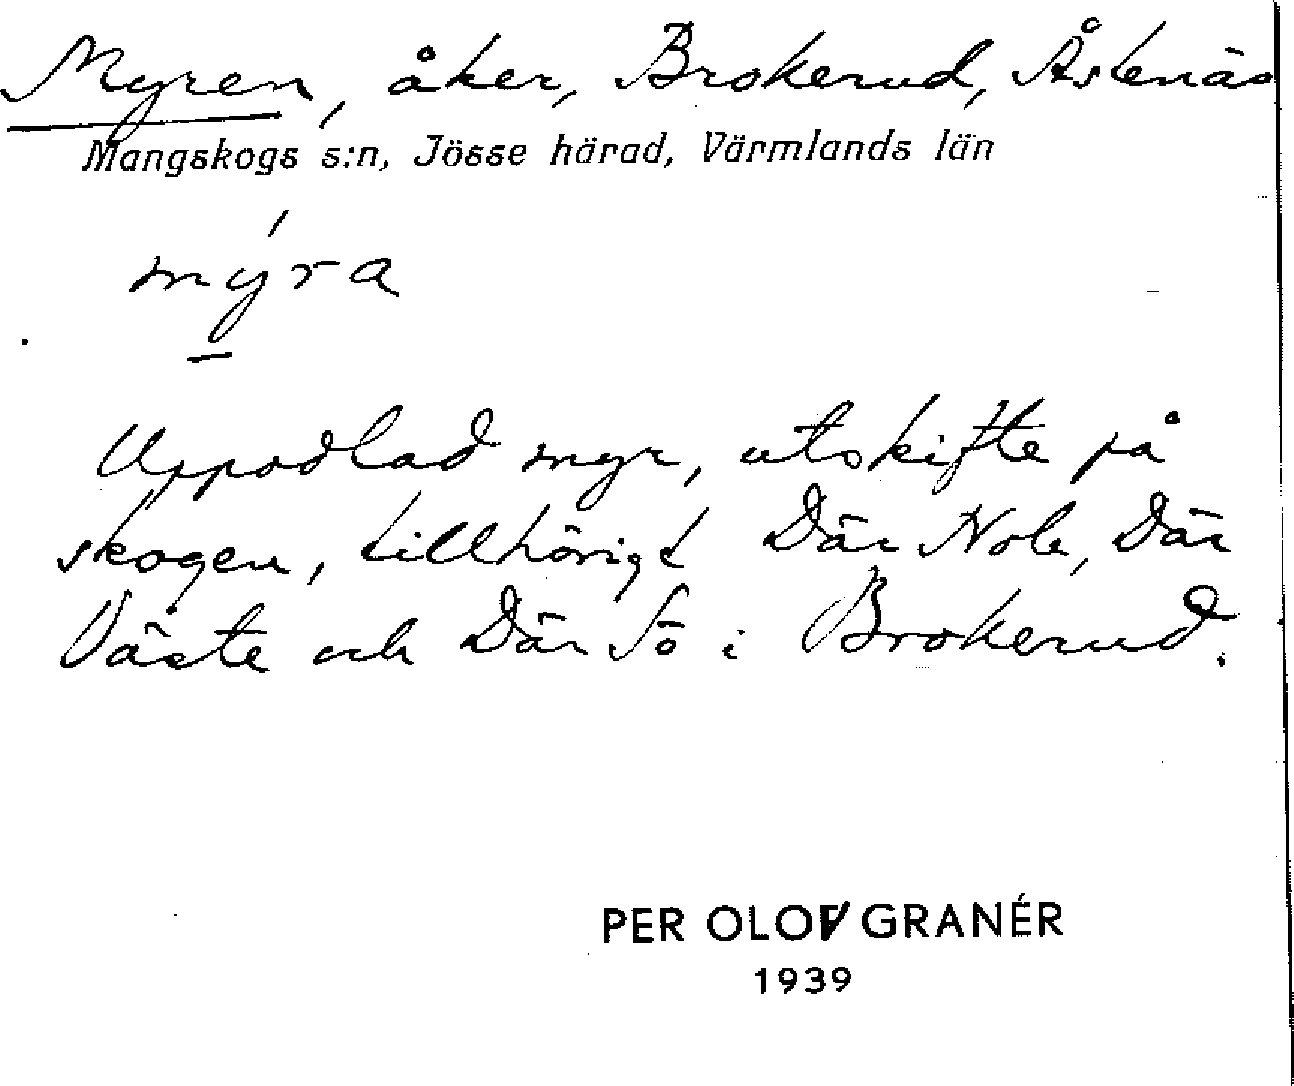 Myren, åker, Brokerud, Åstenäs
Mangskogs s:n, Jösse härad, Värmlands län
mýra
Uppodlad myr, utskifte på
skogen, tillhörigt Där Nole, Där
Väste och Där Sö i Brokerud.
PER OLOV GRANÉR
1939